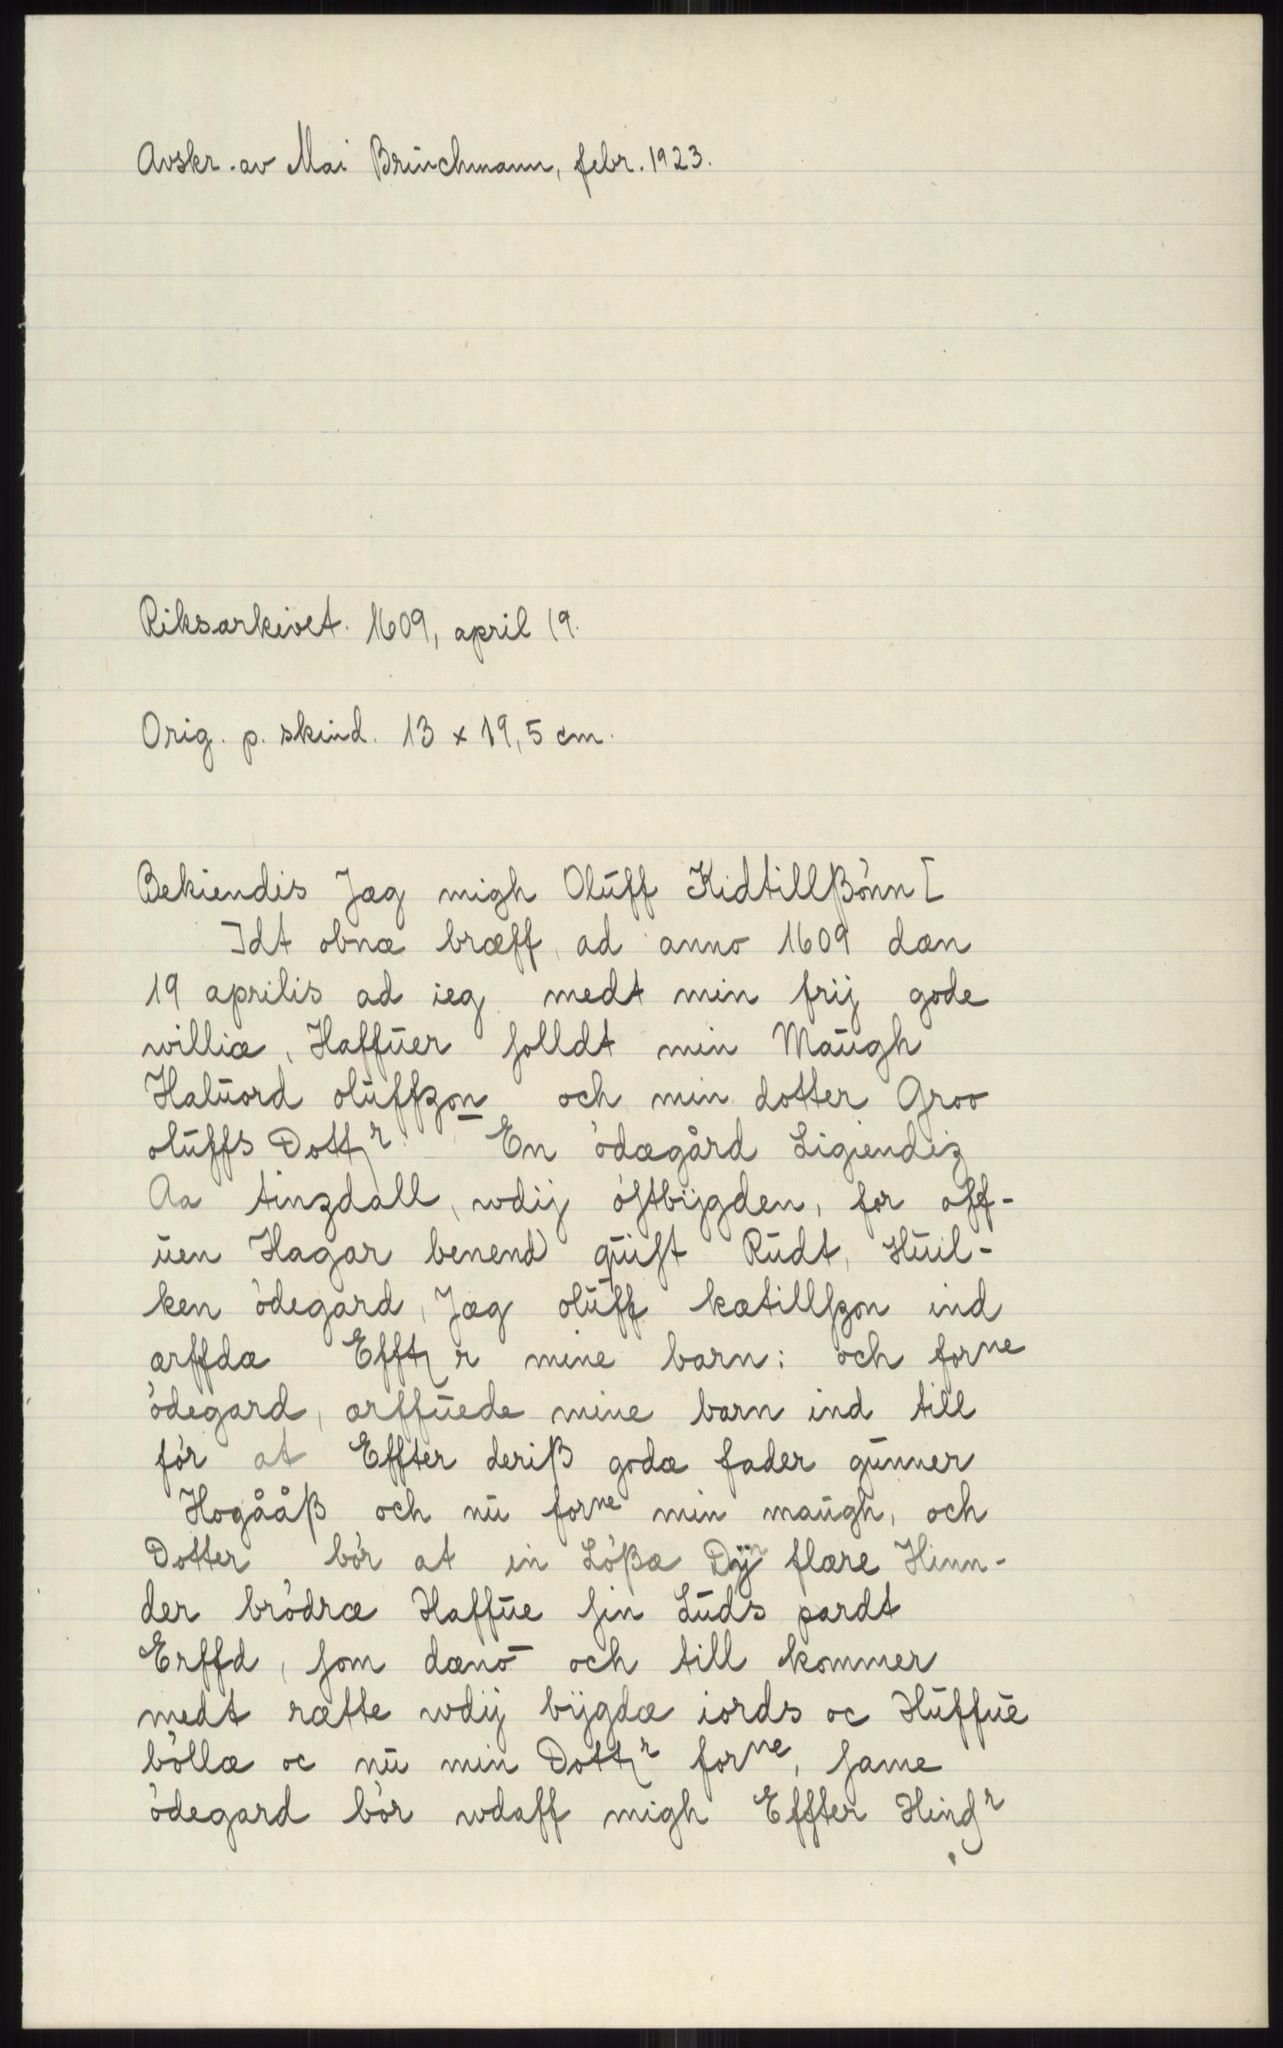 Avskr. av Mai Brŭchmann, febr. 1923.
Riksarkivet. 1609, april 19.
Orig. p. skind. 13 x 19,5 cm.
Bekiendis Jæg migh Olŭff Kidtillßónn [
]dt obnæ bræff, ad anno 1609 dæn
19 aprilis ad ieg medt min frij gode
williæ, Haffŭer solldt min Maŭgh
Halŭord olŭffszon och min dotter Groo
olŭffs Dottr En ódægård Ligiendiz
Aa tinzdall, wdij óstbÿgden, for off-
ŭen Hagar benend qŭist Rŭdt, Hŭil-
ken ódegard, Jæg olŭff kætillszon ind
ærffdæ Efftr mine barn: och forne
ódegard, arffŭede mine barn ind till
fór at Effter deriß godæ fader gŭnner
Hogååß och nŭ forne min maŭgh, och
Dotter bór at in Lóßæ Dÿn flære Hinn-
der bródræ Haffŭe sin Lŭds pardt
Erffd, som dænō och till kommer
medt rætte wdij bÿgdæ iords oc Hŭffŭe
bóllæ oc nŭ min Dottr forne, same
ódegard bór wdaff migh Effter Hindr